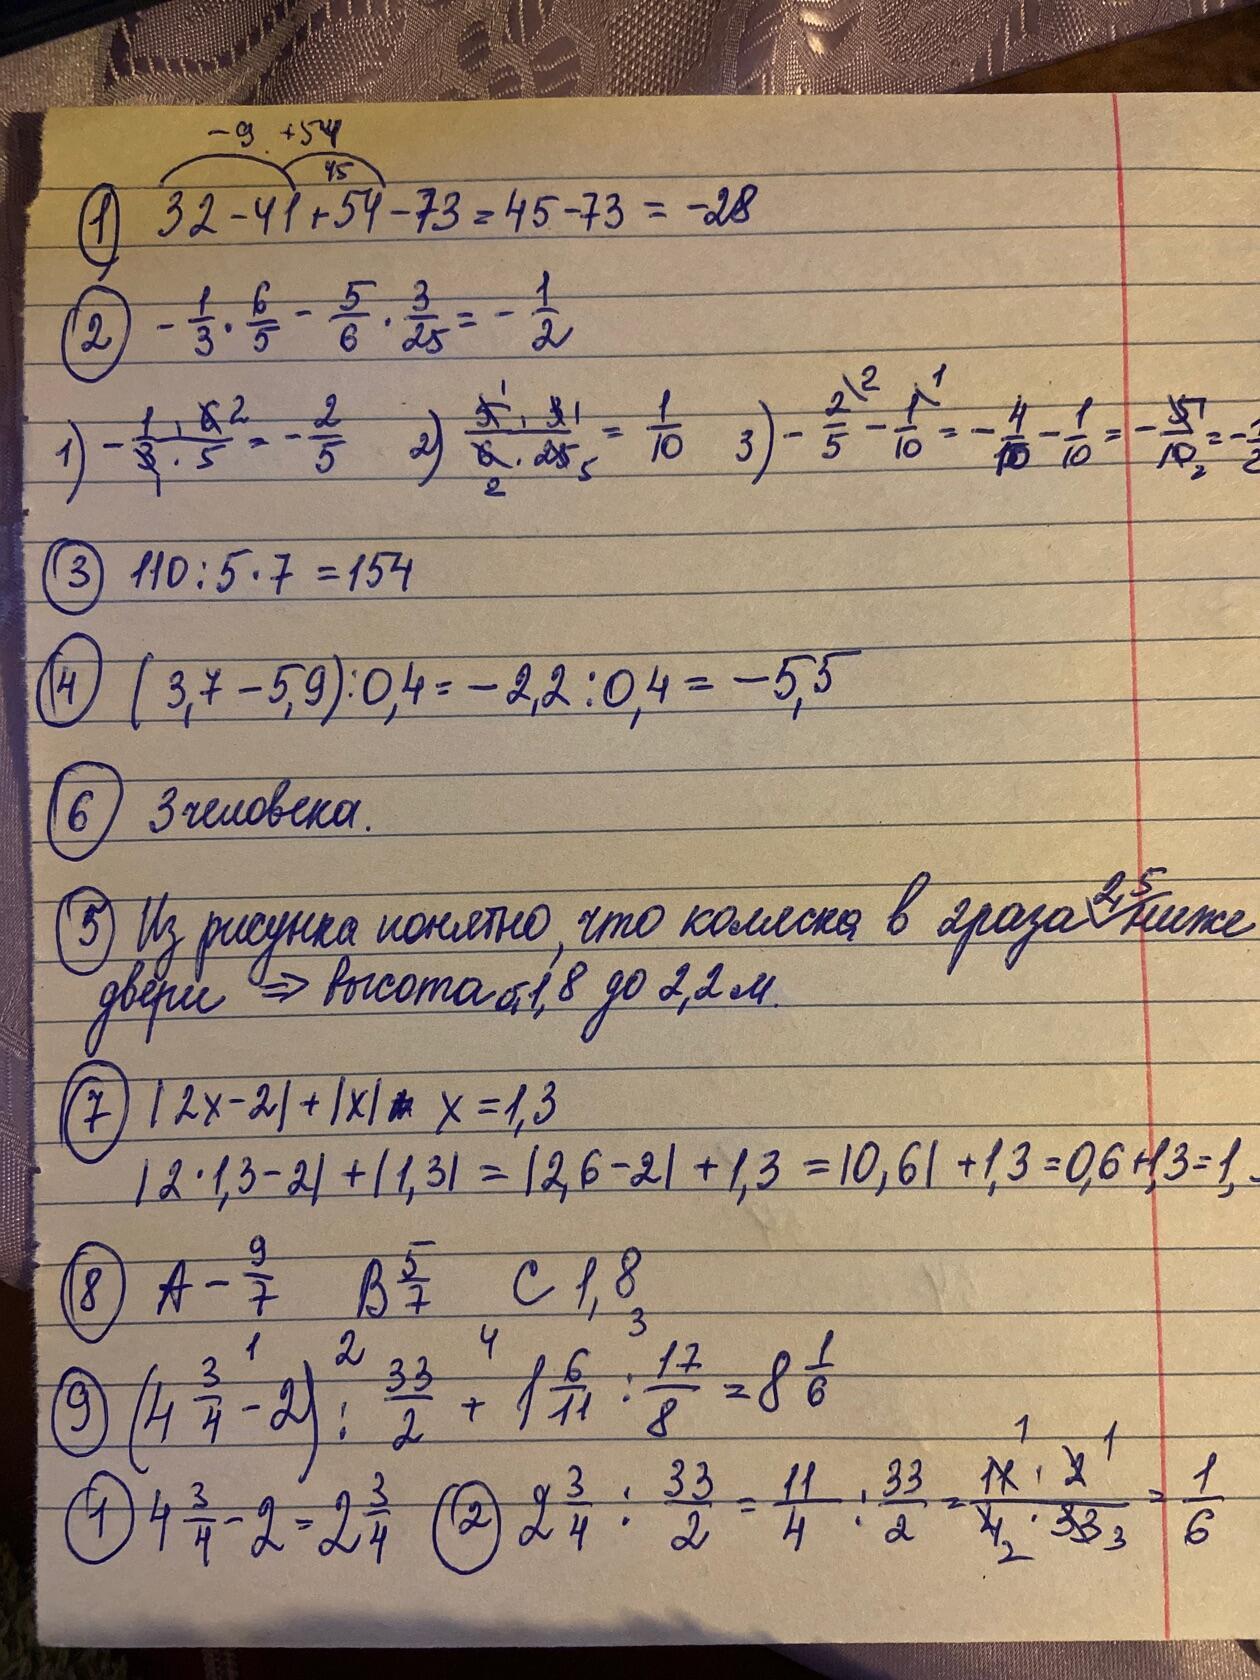 -9 +54
45
① 32-41+54-73=45-73=-28
② -1/3·6/5-5/6·3/25=-1/2
1) -1·6 2/3·5=-2/5 2) 5·3/6·25=1/10 3) -2/5-1/10=-4/10-1/10=-5/10=-1/2
③ 110:5·7=154
④ (3,7-5,9):0,4=-2,2:0,4=-5,5
⑥ 3 человека.
⑤ Из рисунка понятно, что коляска в 2раза 2,5 ниже
двери => высота от 1,8 до 2,2 м.
⑦ |2x-2|+|x| x=1,3
|2·1,3-2|+|1,3|=|2,6-2|+1,3=|0,6|+1,3=0,6+1,3=1,
⑧ A -9/7 B 5/7 C 1,8
1 2 4 3
⑨ (4 3/4-2):33/2+1 6/11:17/8=8 1/6
① 4 3/4-2=2 3/4 ② 2 3/4:33/2=11/4:33/2=11·2/4·33=1/6